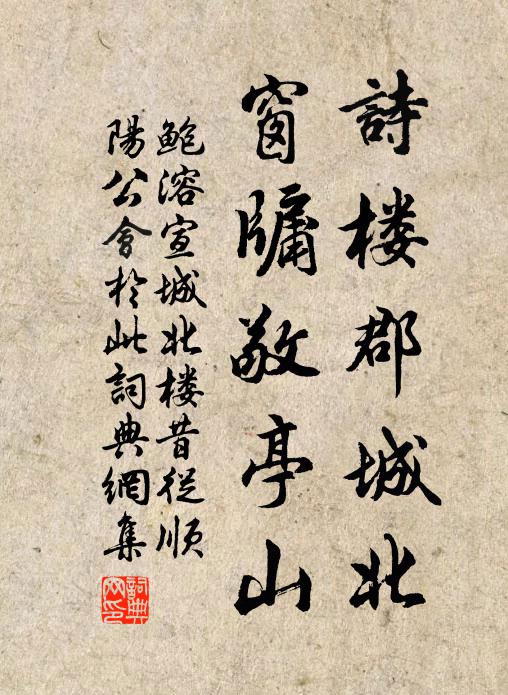 詩楼郡城北
窗牖敬亭山
鲍溶宣城北楼昔從順
陽公會於此詞典網集
詞典網印